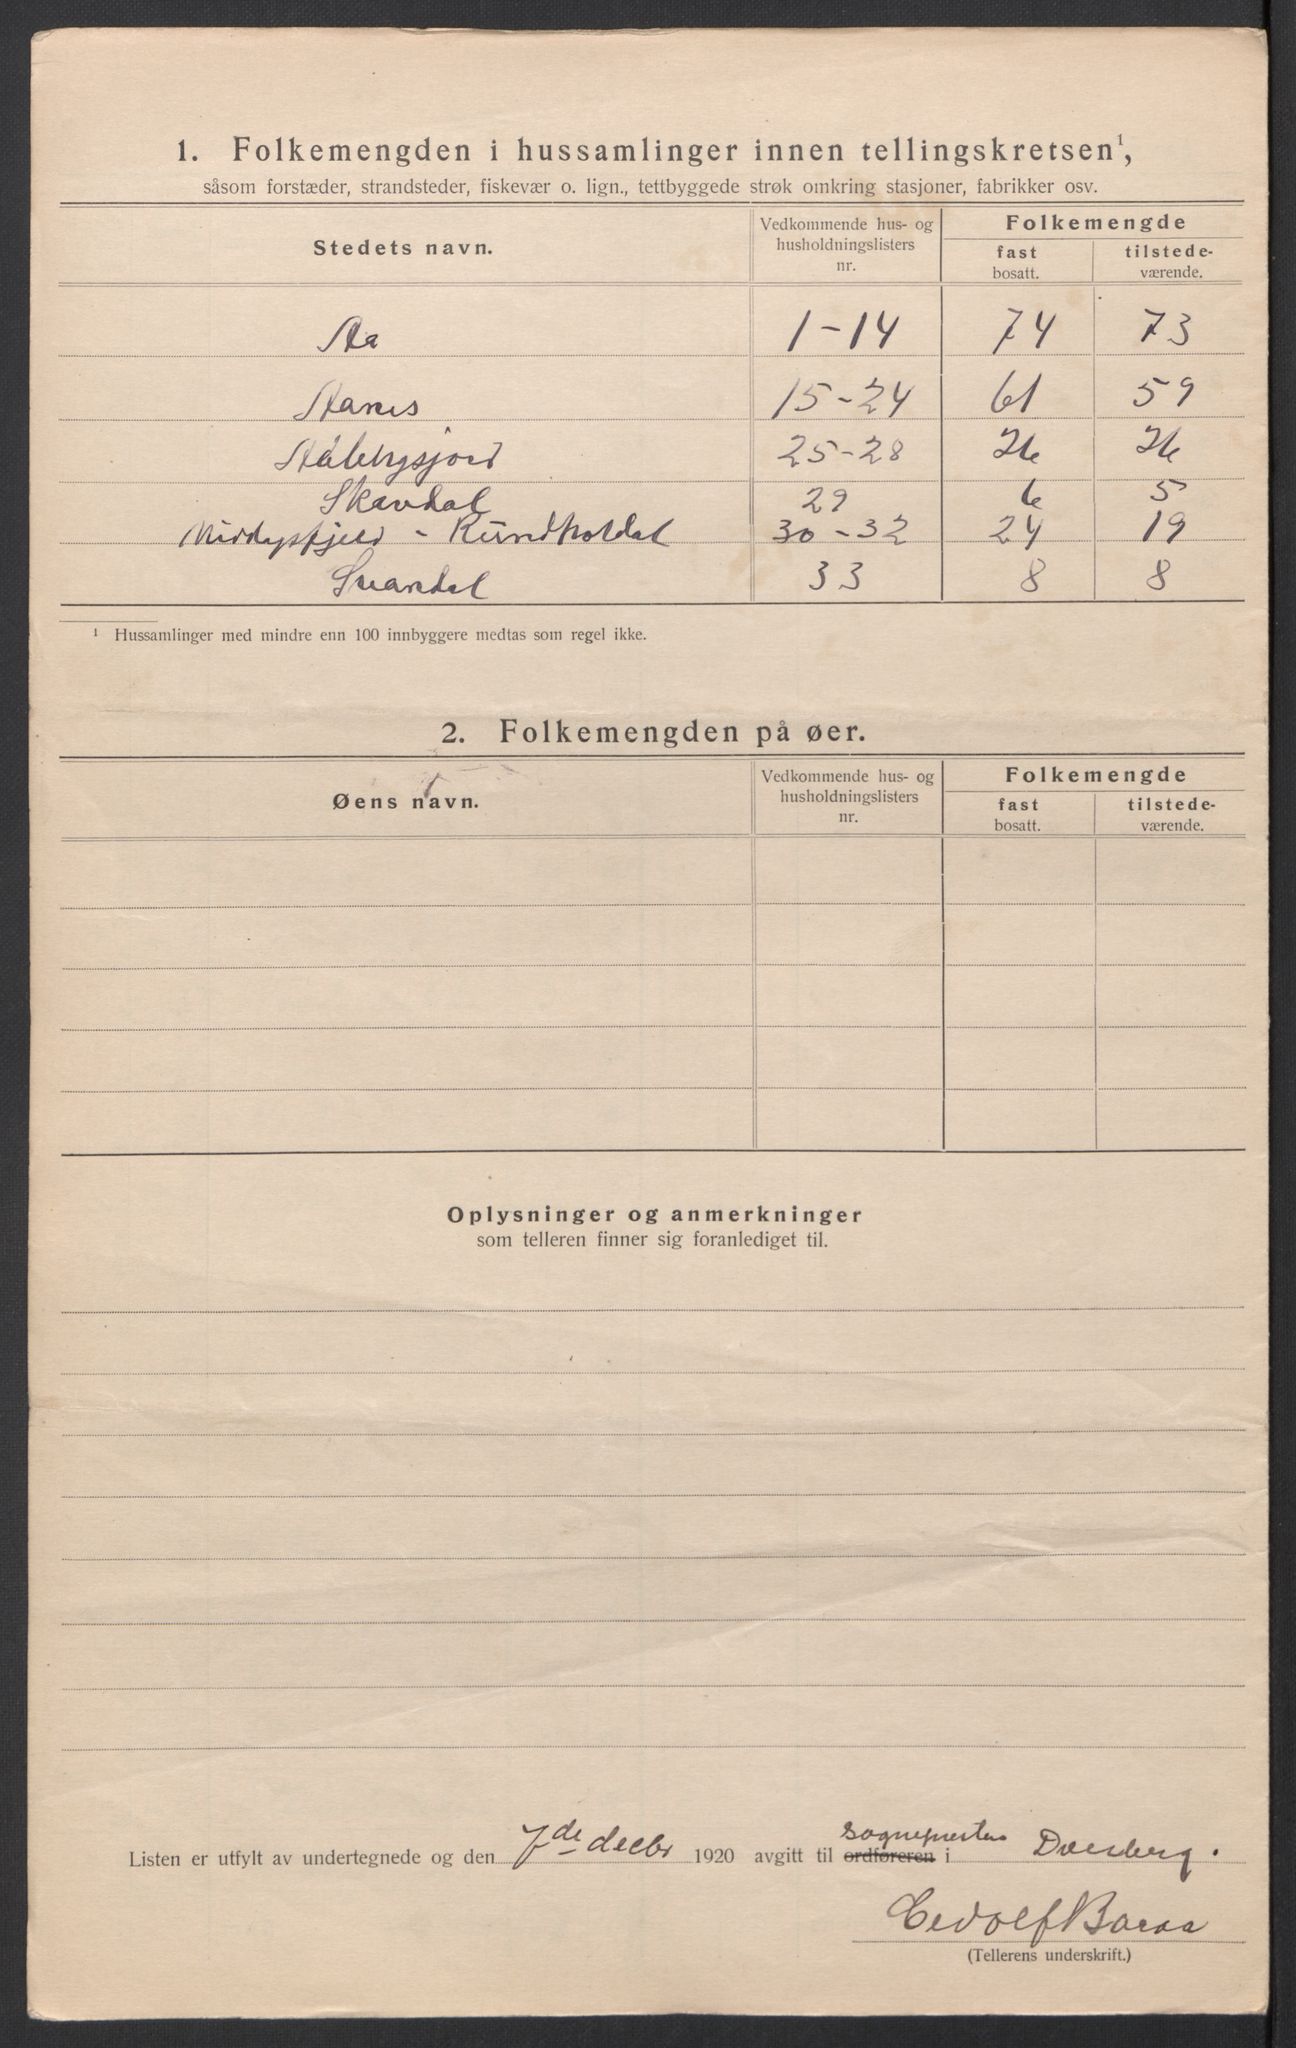 1. Folkemengden i hussamlinger innen tellingskretsen¹,
såsom forstæder, strandsteder, fiskevær o. lign., tettbyggede strøk omkring stasjoner, fabrikker osv.
Stedets navn. Vedkommende hus- og husholdningslisters nr. Folkemengde
fast bosatt. tilstede-værende.
Aa 1-14 74 73
Aanes 15-24 61 59
Aabergsjord 25-28 26 26
Skavdal 29 6 5
Middagsfjeld - Rundholdal 30-32 24 19
Svandal 33 8 8
¹ Hussamlinger med mindre enn 100 innbyggere medtas som regel ikke.
2. Folkemengden på øer.
Øens navn. Vedkommende hus- og husholdningslisters nr. Folkemengde
fast bosatt. tilstede-værende.
Oplysninger og anmerkninger
som telleren finner sig foranlediget til.
sognepresten
Listen er utfylt av undertegnede og den 7de decbr 1920 avgitt til ordføreren i Dverberg.
(Tellerens underskrift.)